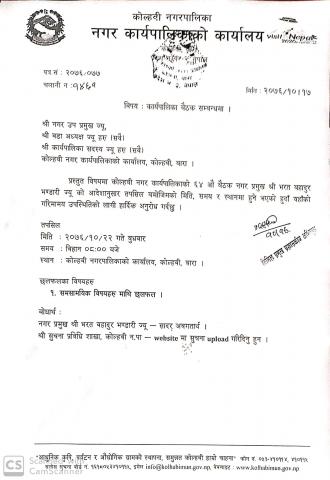 कोल्हवी नगरपालिका
नगर कार्यपालिकाको कार्यालय
visit Nepal
पत्र सं : २०७६/०७७
चलानी न :१४६१
मिति : २०७६/१०/१७
विषय : कार्यपालिका बैठक सम्बन्धमा ।
श्री नगर उप प्रमुख ज्यू,
श्री वडा अध्यक्ष ज्यू हरु (सबै)
श्री कार्यपालिका सदस्य ज्यू हरु (सबै)
कोल्हवी नगर कार्यपालिकाको कार्यालय, कोल्हवी, बारा ।
प्रस्तुत विषयमा कोल्हवी नगर कार्यपालिकाको ६४ औं बैठक नगर प्रमुख श्री भरत बहादुर
भण्डारी ज्यू को आदेशानुसार तपसिल बमोजिमको मिति, समय र स्थानमा हुने भएको हुवाँ यहाँको
गरिमामय उपस्थितिको लागी हार्दिक अनुरोध गर्दछु ।
तपसिल
मिति : २०७६/१०/२२ गते वुधबार
समय : बिहान ०८:०० बजे
स्थान : कोल्हवी नगरपालिकाको कार्यालय, कोल्हवी, बारा ।
छलफलका विषयहरु
१. समसामयिक विषयहरु माथि छलफल ।
बोधार्थ :
नगर प्रमुख श्री भरत बहादुर भण्डारी ज्यू – सादर अवगतार्थ ।
श्री सुचना प्रविधि शाखा, कोल्हवी न.पा – website मा सुचना upload गरिदिनु हुन ।
"आधुनिक कृषि, पर्यटन र औद्योगिक ग्रामको स्थापना, समुन्नत कोल्हवी हाम्रो चाहना"
इमेल : info@kolhabimun.gov.np, वेबसाइट : www.kolhabimun.gov.np
CS
CamScanner